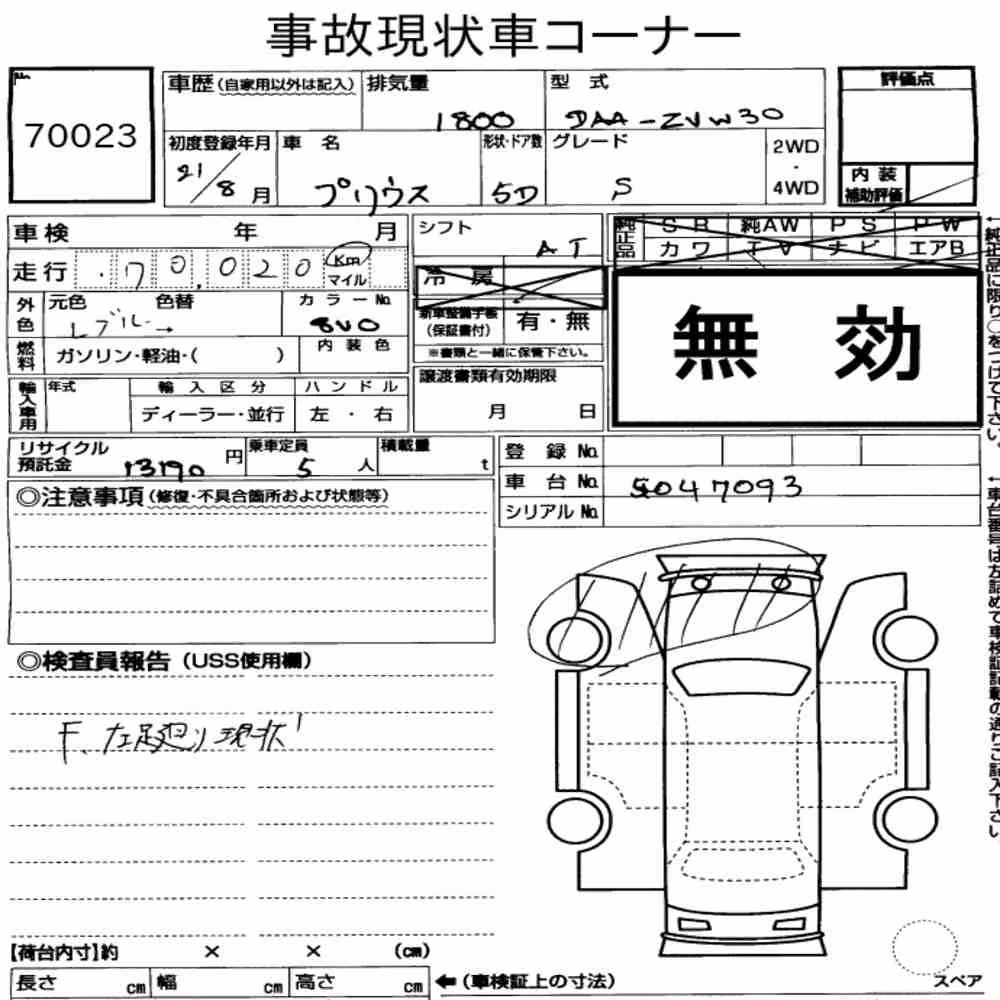 事故現状車コーナー
No.
70023
車歴(自家用以外は記入) 排気量 1800 型式 DAA-ZVW30
初度登録年月 21/8月 車名 プリウス 形状・ドア数 5D グレード S 2WD・4WD
評価点
内装補助評価
車検 年 月
走行 .170,020 Km マイル
外色 元色 Lブルー→ 色替 カラーNo. 8V0
燃料 ガソリン・軽油・( ) 内装色
輸入車用 年式 輸入区分 ディーラー・並行 ハンドル 左・右
シフト AT
冷房
新車整備手帳(保証書付) 有・無
※書類と一緒に保管下さい。
譲渡書類有効期限
月 日
純正品 SR 純AW PS PW
カワ TV ナビ エアB
無効
←純正品に限り○をつけて下さい。
リサイクル預託金 13190円 乗車定員 5人 積載量 t
登録No.
車台No. 5047093
シリアルNo.
←車台番号は左詰めで車検証記載の通りご記入下さい。
◎注意事項(修復・不具合箇所および状態等)
◎検査員報告(USS使用欄)
F、左足廻り現状!
【荷台内寸】約 × × (cm)
長さ cm 幅 cm 高さ cm ←(車検証上の寸法)
スペア